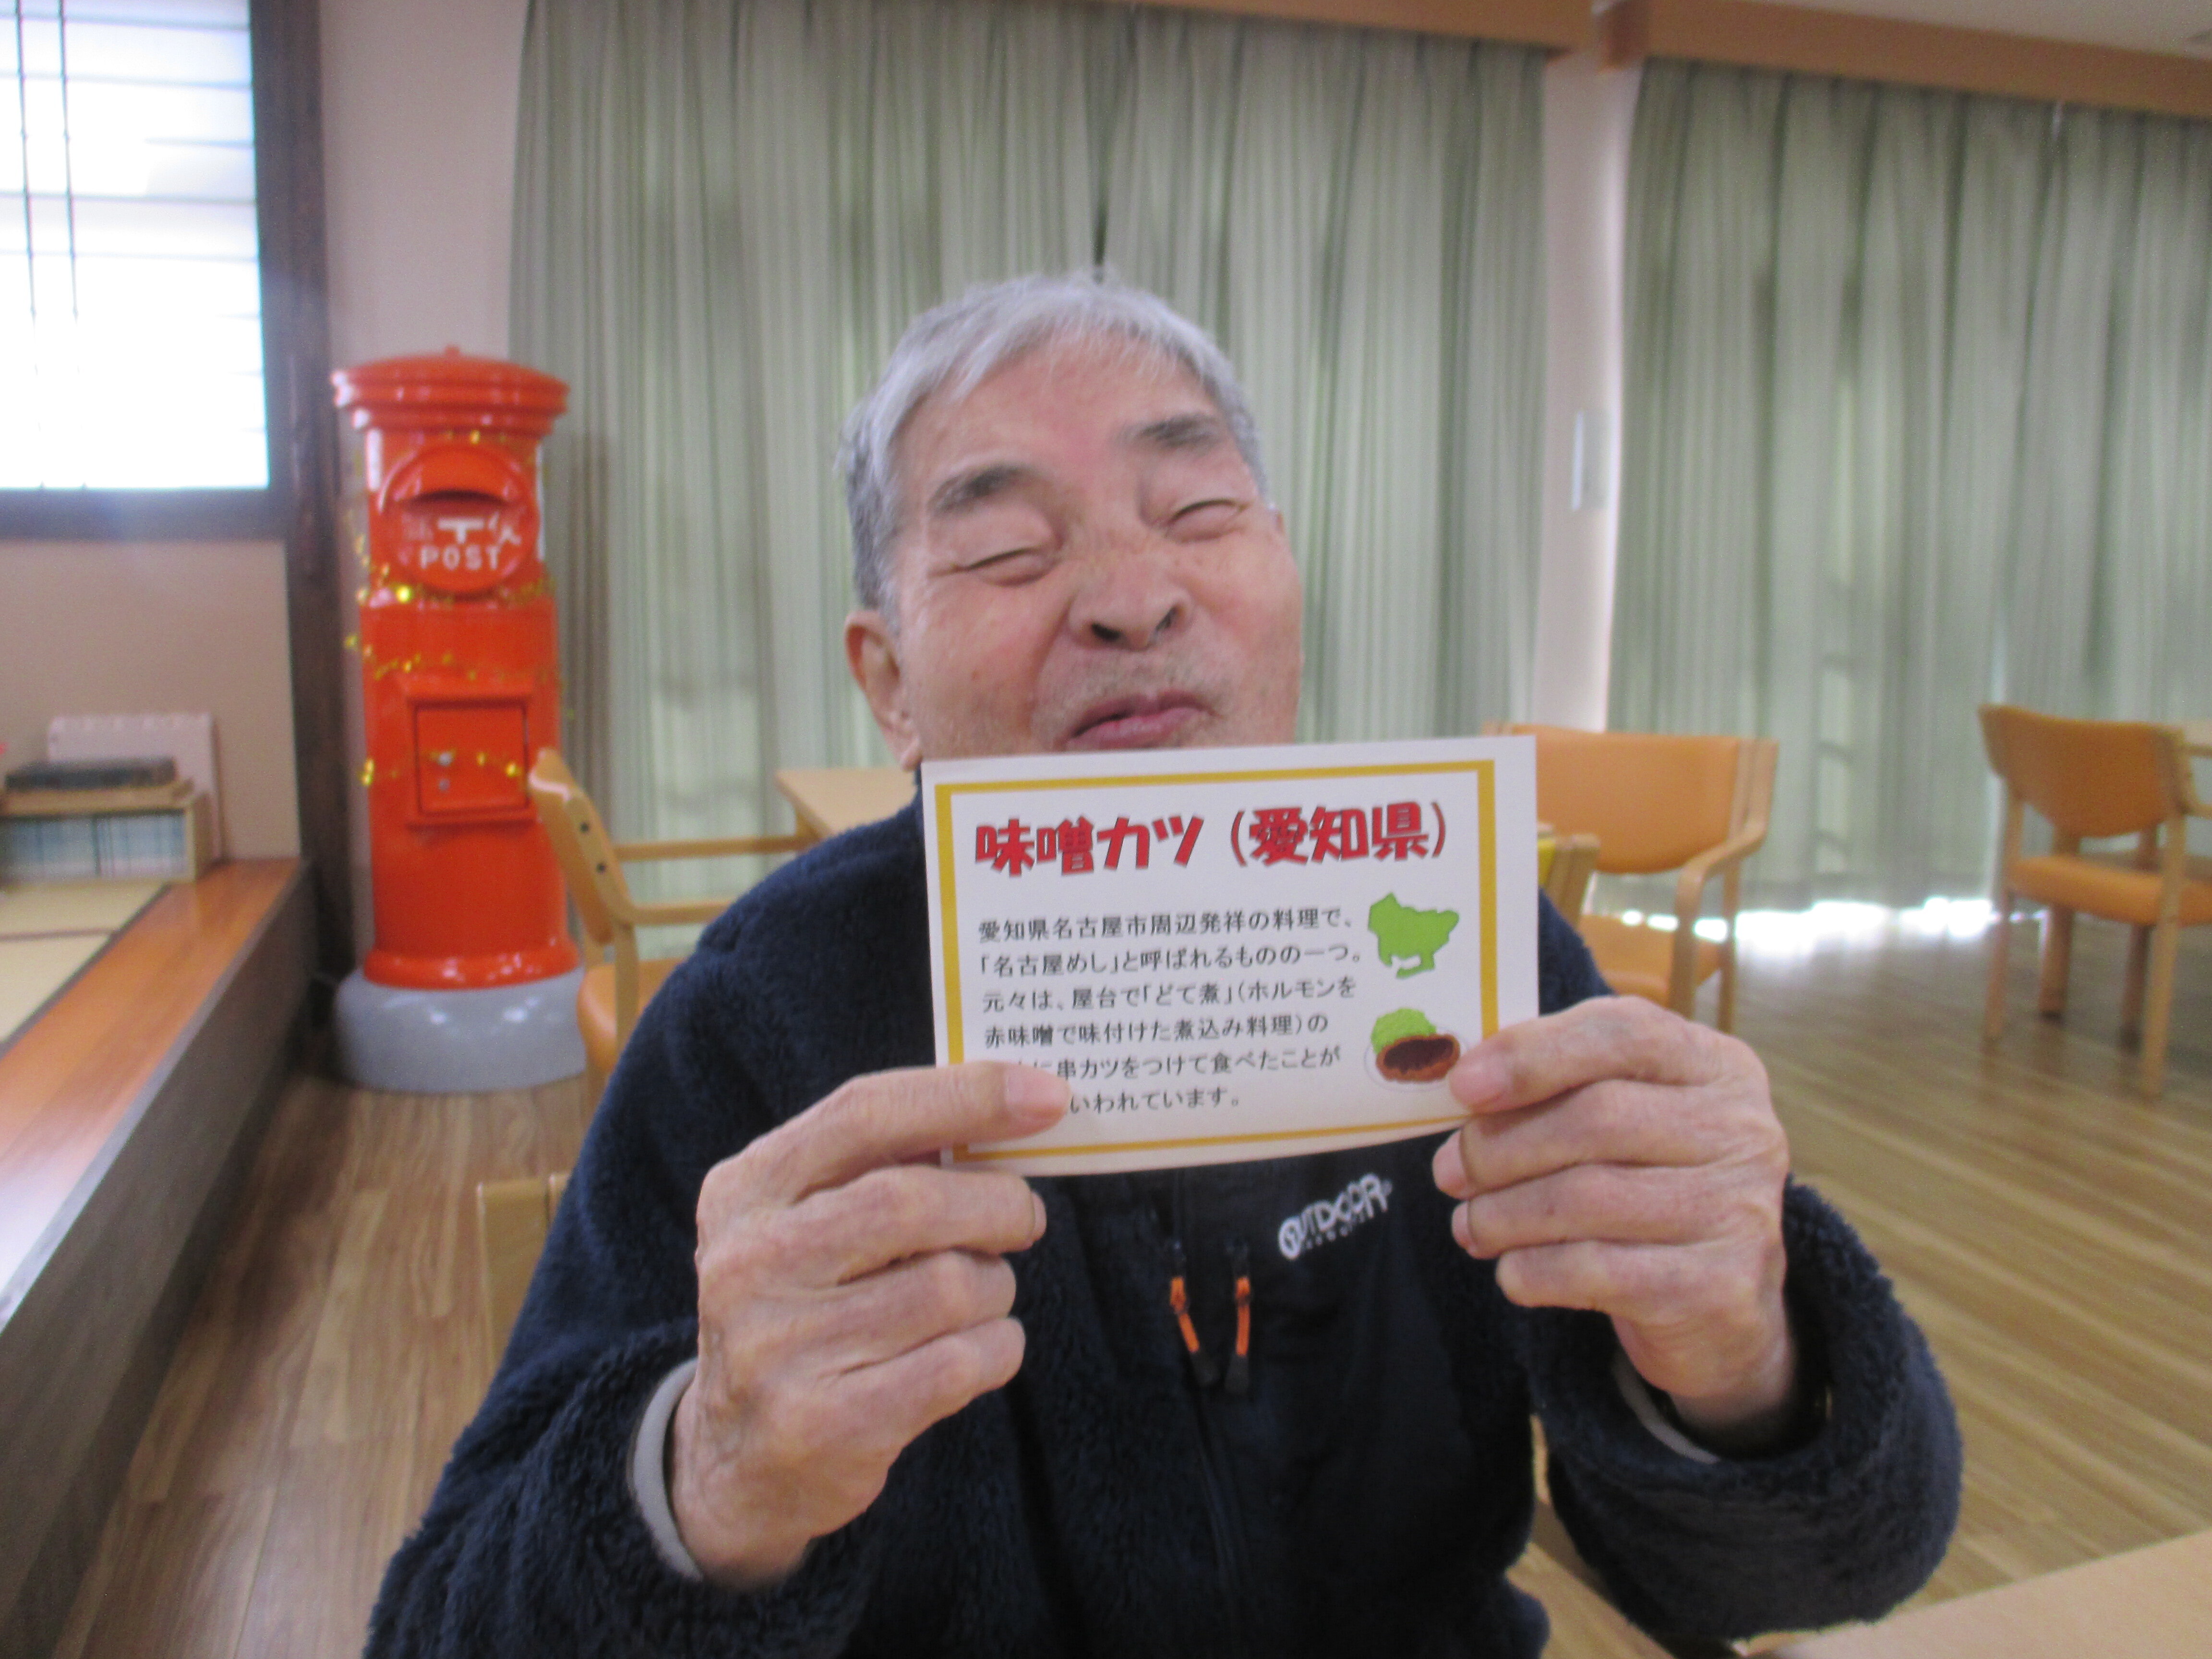 〒
POST
味噌カツ（愛知県）
愛知県名古屋市周辺発祥の料理で、
「名古屋めし」と呼ばれるものの一つ。
元々は、屋台で「どて煮」（ホルモンを
赤味噌で味付けた煮込み料理）の
に串カツをつけて食べたことが
いわれています。
OUTDOOR